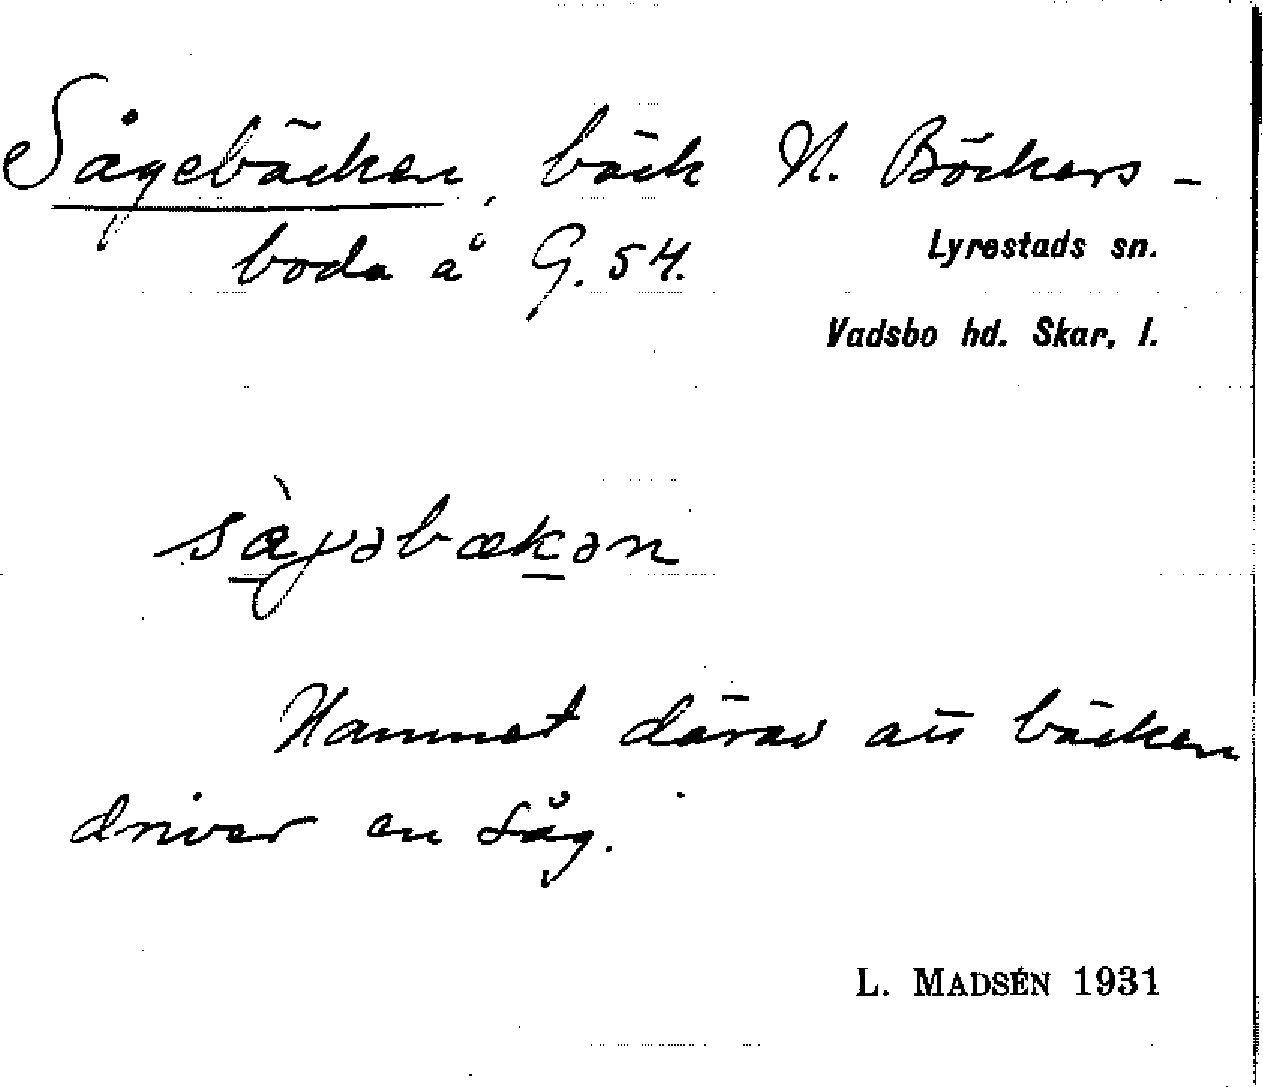 Sågebäcken, bäck N. Böckers-
boda å G. 54.
Lyrestads sn.
Vadsbo hd. Skar. l.
sàgəbækən
Namnet därav att bäcken
driver en såg.
L. MADSÉN 1931